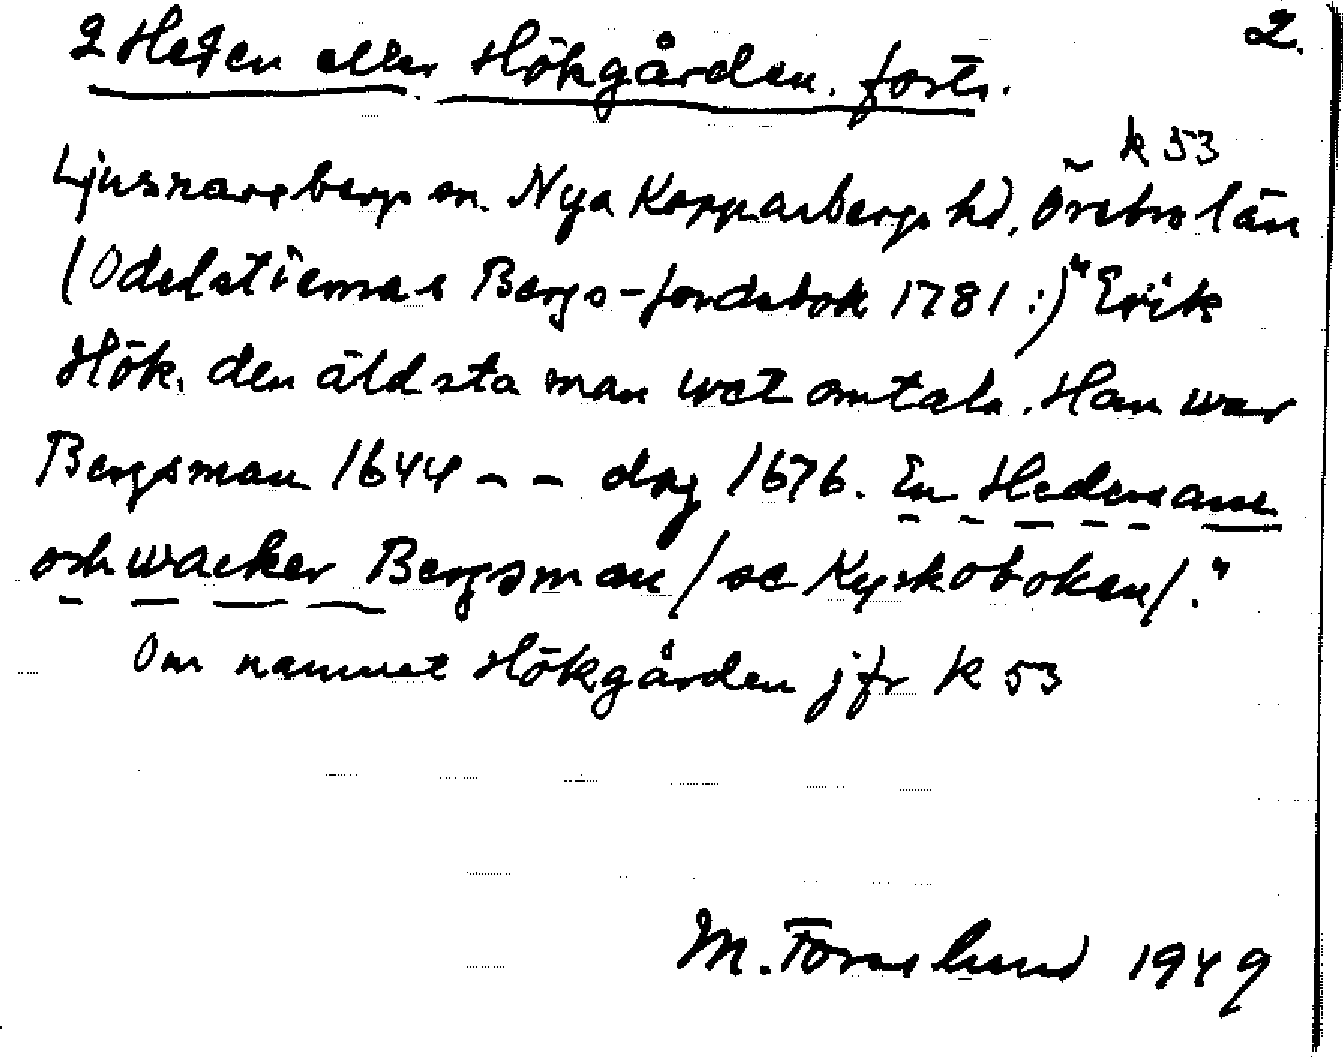 2.
2 Heden eller Hökgården. forts.
k 53
Ljusnarsbergs sn. Nya Kopparbergs hd. Örebro län
(Odelstiernas Bergs-jordabok 1781:) "Erik
Hök, den äldsta man wet omtala. Han war
Bergsman 1644 - - dog 1676. En Hedersam
och wacker Bergsman /se Kyrkoboken/."
Om namnet Hökgården jfr k 53
M. 1949